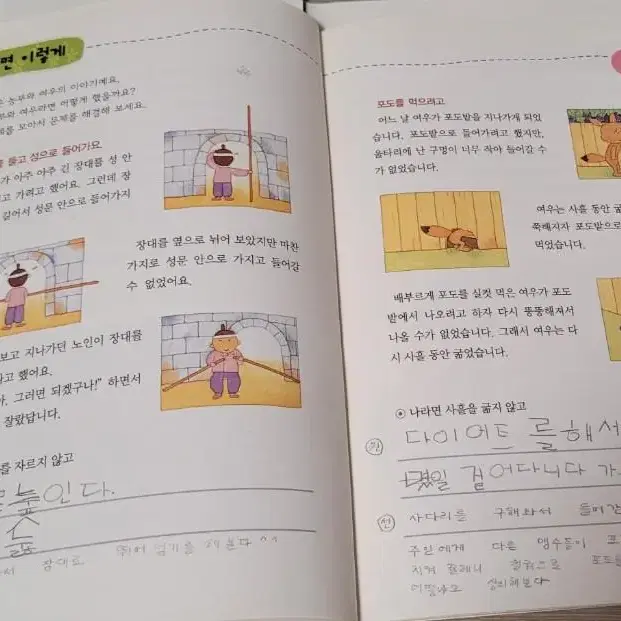 면 이렇게
농부와 여우의 이야기예요.
여우라면 어떻게 했을까요?
보아서 문제를 해결해 보세요.
들고 성으로 들어가요
가 아주 아주 긴 장대를 성 안
고 가려고 했어요. 그런데 장
길어서 성문 안으로 들어가지
장대를 옆으로 뉘어 보았지만 마찬
가지로 성문 안으로 가지고 들어갈
수 없었어요.
보고 지나가던 노인이 장대를
라고 했어요.
아, 그러면 되겠구나!" 하면서
잘랐답니다.
를 자르지 않고
인다.
장대로 뛰어 넘기를 해 본다 ^^
포도를 먹으려고
어느 날 여우가 포도밭을 지나가게 되었
습니다. 포도밭으로 들어가려고 했지만,
울타리에 난 구멍이 너무 작아 들어갈 수
가 없었습니다.
여우는 사흘 동안 굶
쭉해지자 포도밭으로
먹었습니다.
배부르게 포도를 실컷 먹은 여우가 포도
밭에서 나오려고 하자 다시 뚱뚱해져서
나올 수가 없었습니다. 그래서 여우는 다
시 사흘 동안 굶었습니다.
나라면 사흘을 굶지 않고
다이어트를해서
걸어다니다 가
선 사다리를 구해와서 들어간
주인에게 다른 맹수들이 포
지켜 줄테니 포도를